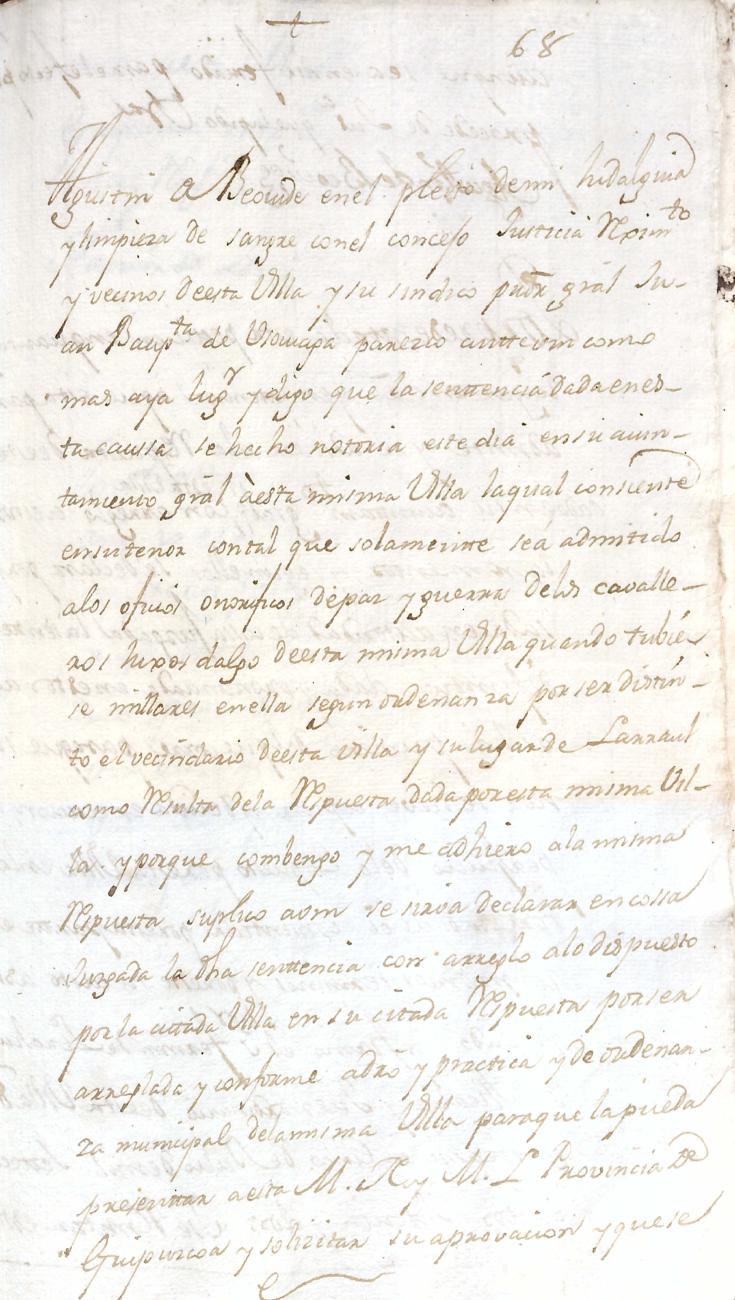 +
68
Agustin de Beovide en el pleito demi hidalguia
y limpieza de sangre conel concejo Justicia Rejim^to
y vecinos deesta Villa y su sindico prõr grâl Ju-
an Baup^ta de parezco antte vm como
mas aya lug^r y digo que la senttencia dada enes-
ta caussa se hecho notoria este dia ensu aiun-
tamiento grâl à esta misma Villa laqual consiente
ensu tenor contal que solamentte sea admitido
alos oficios onorificos depaz y guerra delos cavalle-
ros hixos dalgo deesta misma Villa quando tubie-
se millares enella segun ordenanza por ser distin-
to el vecindario deesta villa y su lugar de Larraul
como Resulta dela Respuesta dada por esta misma Vil-
la y porque combengo y me adhiero a la misma
Respuesta suplico a vm se sirva declarar en cossa
Juzgada la dha senttencia con arreglo a lo dispuesto
por la citada Villa en su citada Respuesta por ser
arreglada y conforme adrõ y practica y de ordenan-
za municipal dela misma Villa para que la pueda
presenttar a esta M. N. y M. L. Provincia de
Guipuzcoa y solicitar su aprovacion y que se